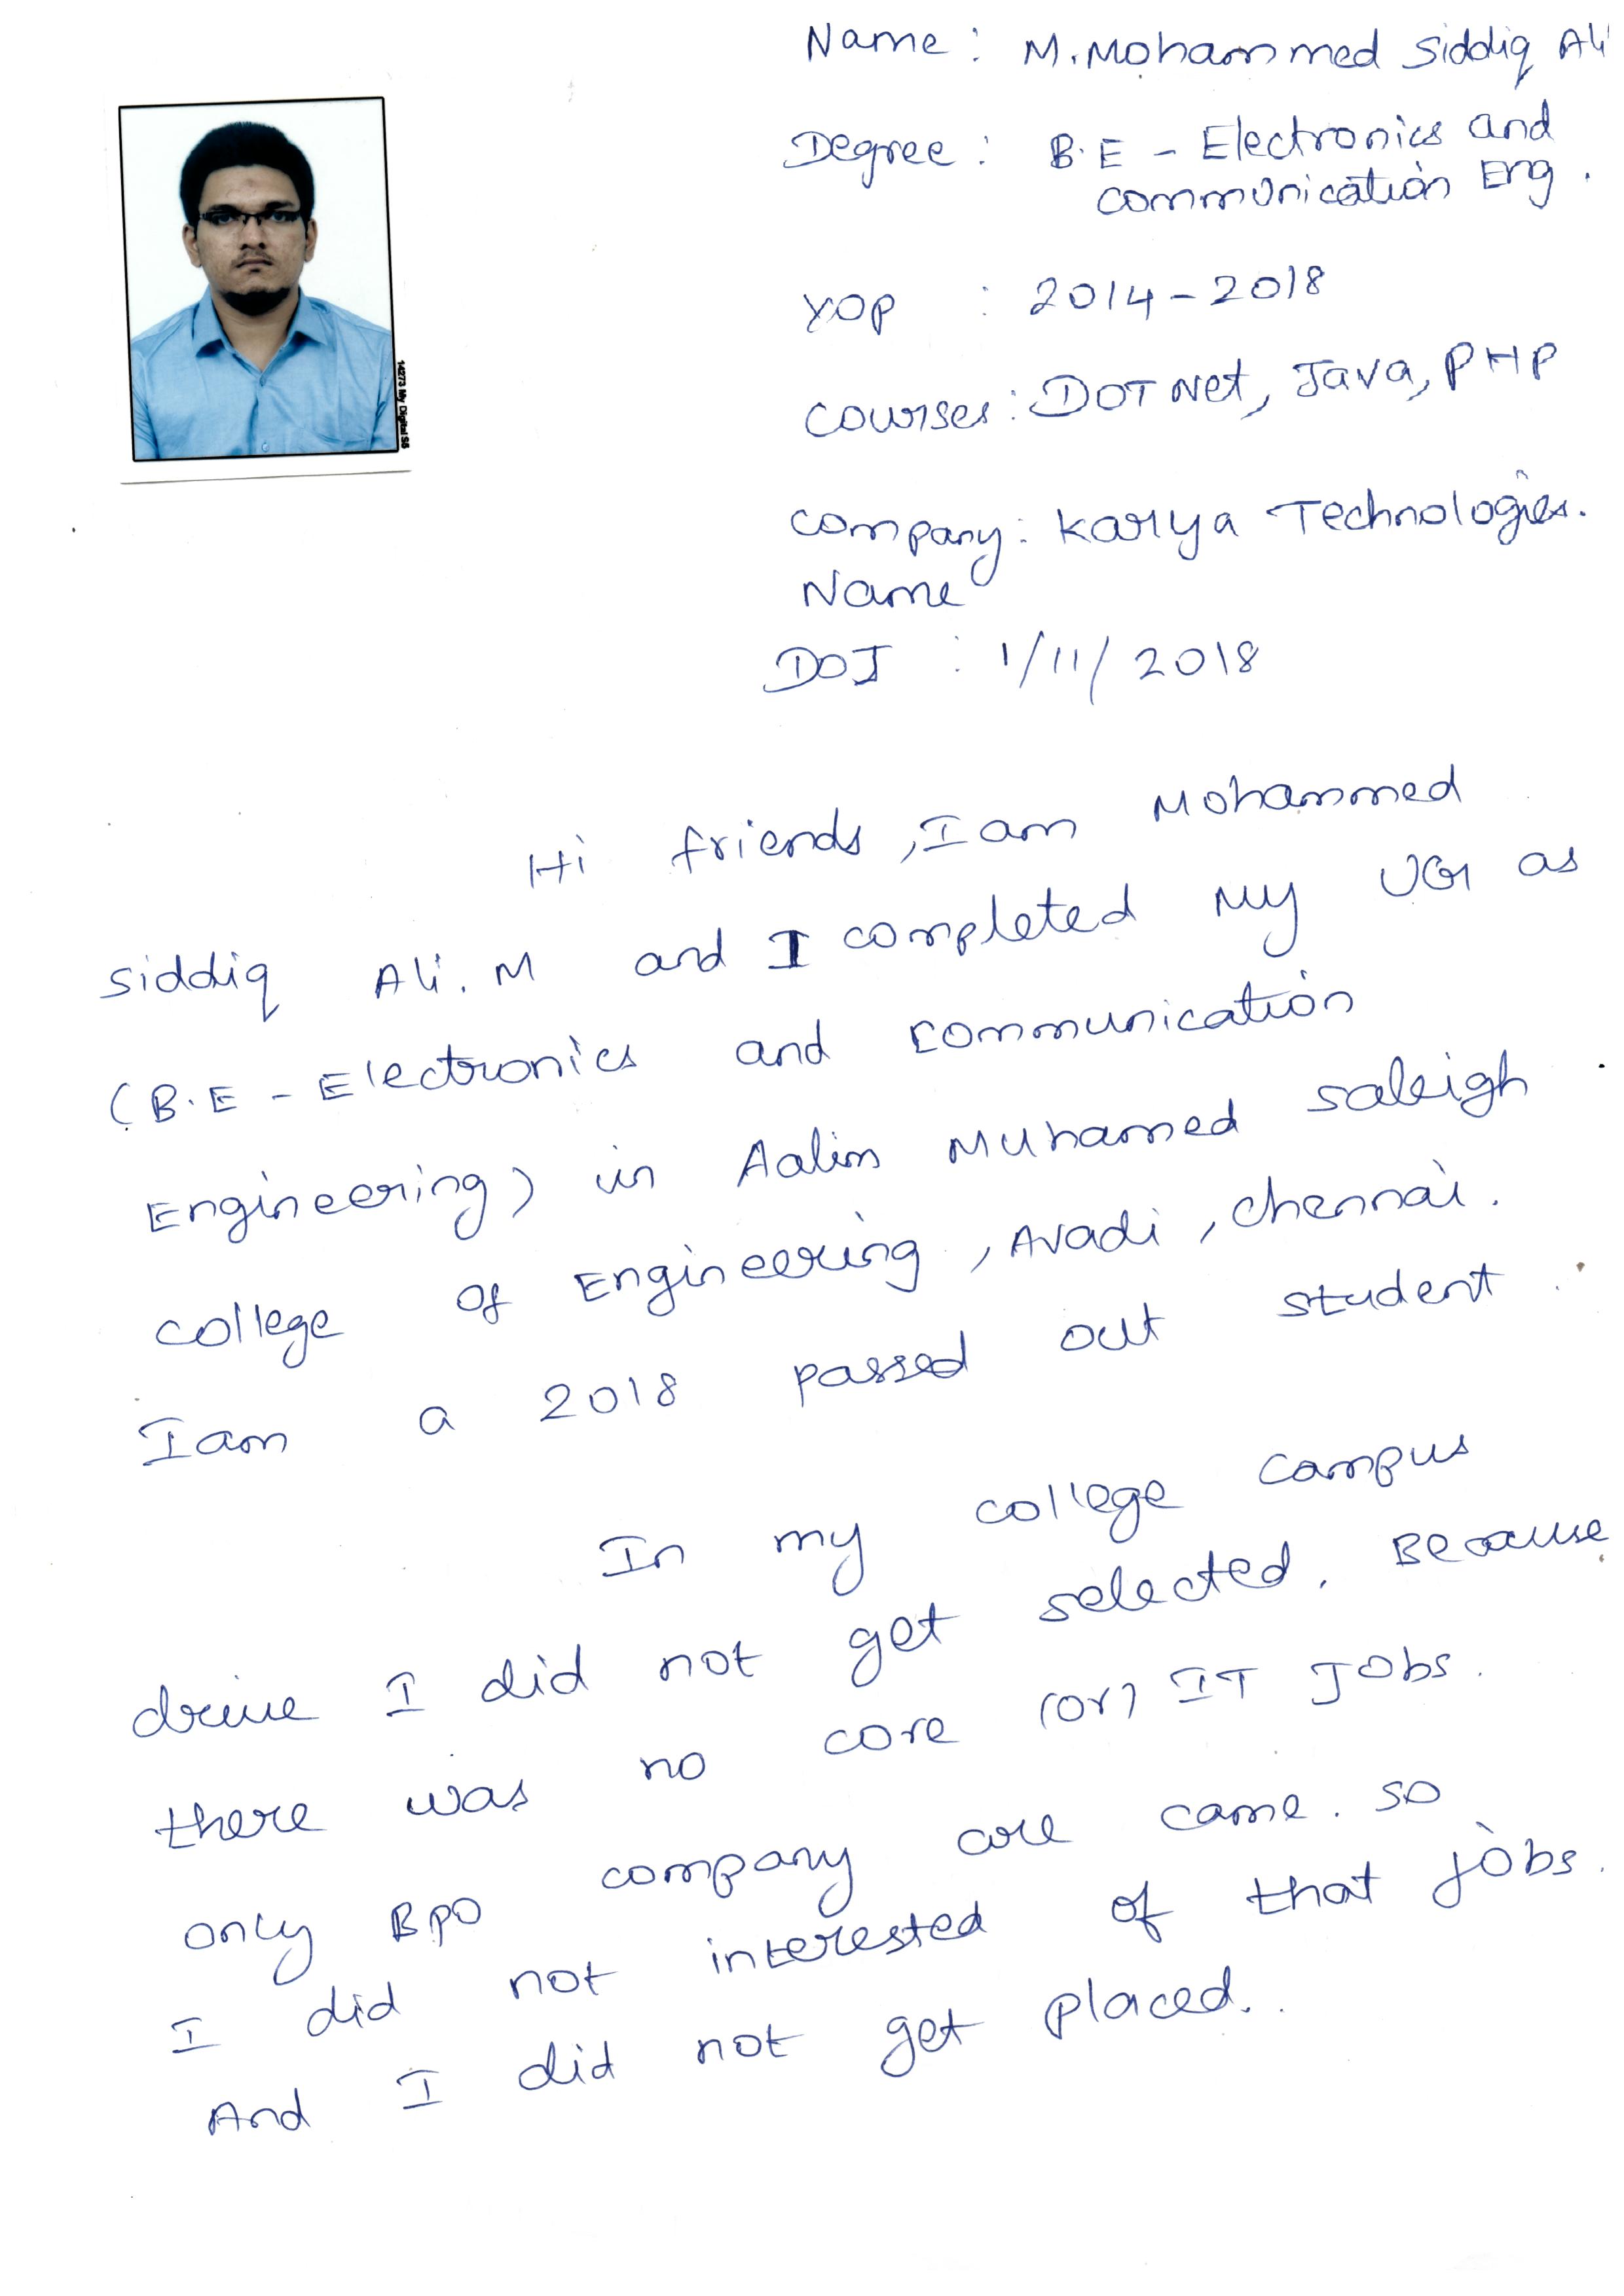 Name : M. Mohammed Siddiq Ali
Degree : B.E - Electronics and
communication Eng.
YOP : 2014-2018
Courses : DOT Net, Java, PHP
Company : Karya Technologies.
Name
DOJ : 1/11/2018
14273 My Digital S6
Hi friends, I am Mohammed
Siddiq Ali. M and I completed My UG as
(B.E - Electronics and Communication
Engineering) in Aalim Muhamed saleigh
college of Engineering, Avadi, Chennai.
I am a 2018 passed out student.
In my college campus
drive I did not get selected. Because
there was no core (or) IT Jobs.
only BPO company are came. so
I did not interested of that jobs.
And I did not get placed.